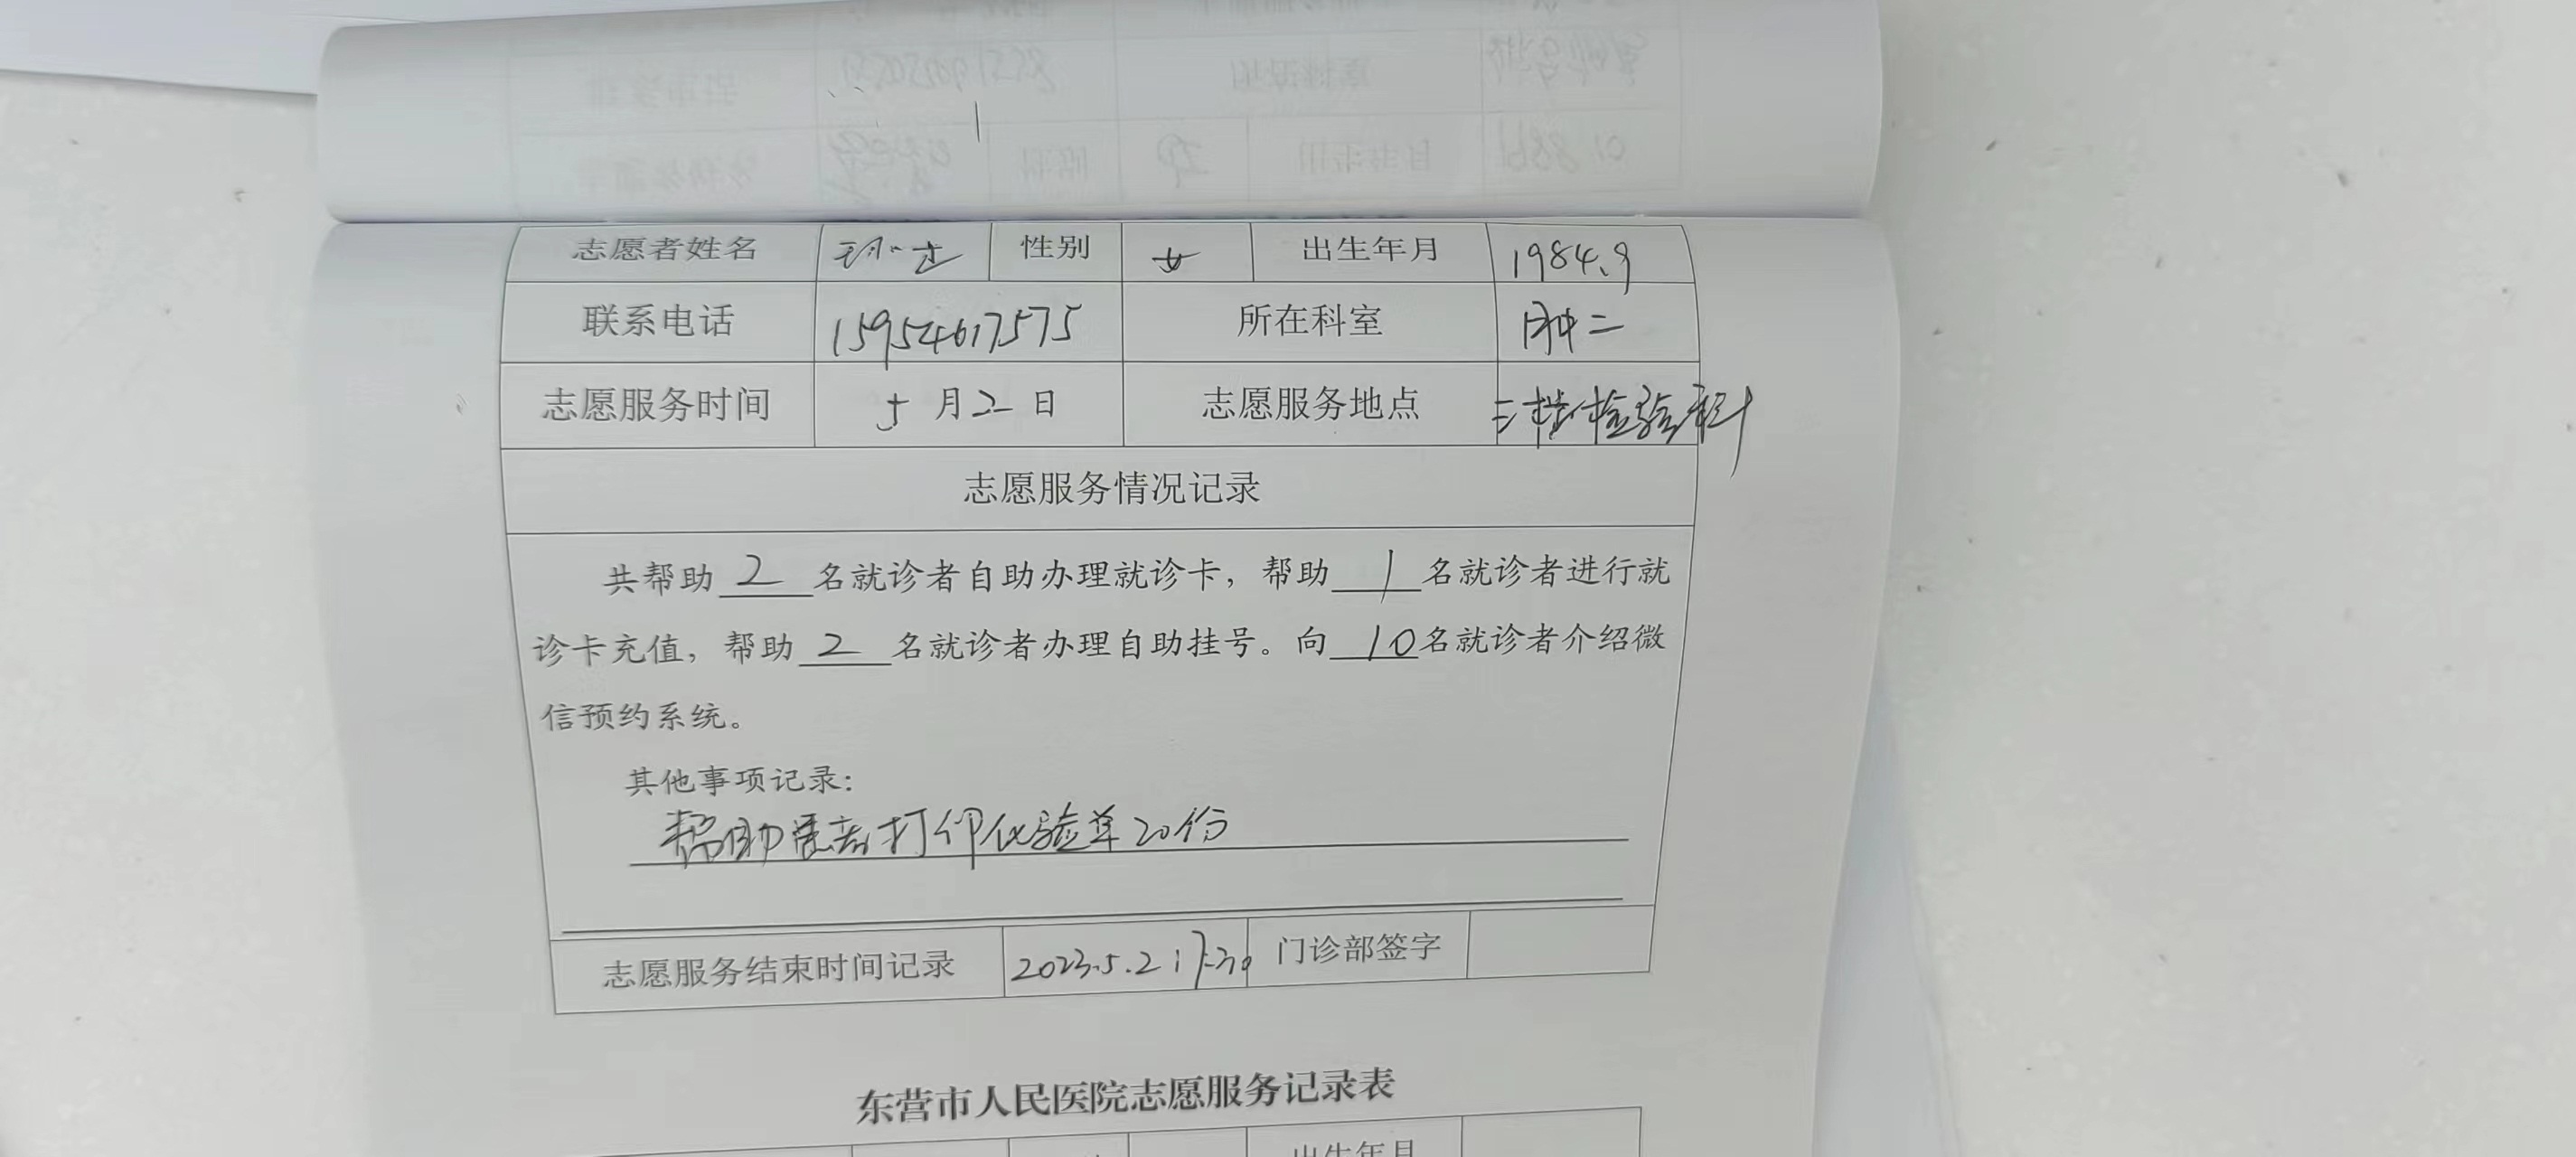 志愿者姓名 性别 女 出生年月 1984.9
联系电话 15954617575 所在科室 肿二
志愿服务时间 5月2日 志愿服务地点 三楼检验科
志愿服务情况记录
共帮助 2 名就诊者自助办理就诊卡，帮助 1 名就诊者进行就
诊卡充值，帮助 2 名就诊者办理自助挂号。向 10 名就诊者介绍微
信预约系统。
其他事项记录：
帮助患者打印化验单20份
志愿服务结束时间记录 2023.5.2 17:30 门诊部签字
东营市人民医院志愿服务记录表
出生年月